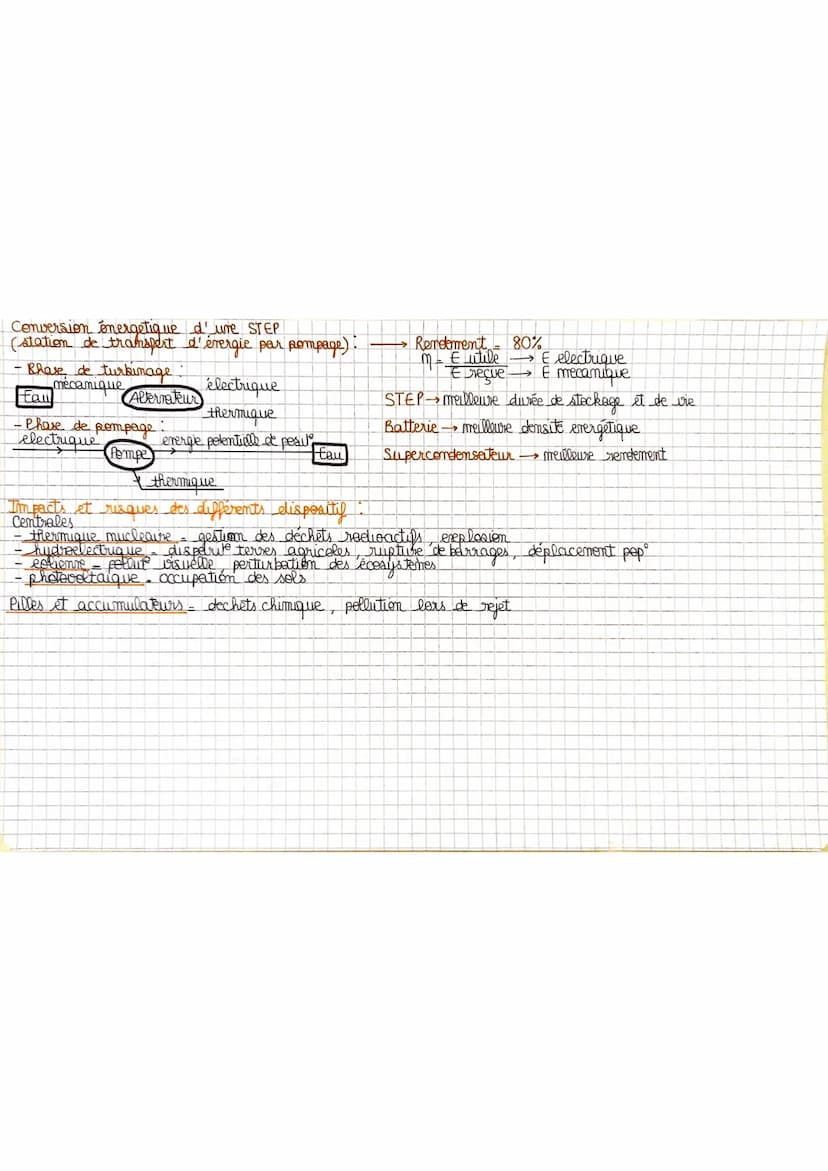 Conversion énergétique d'une STEP
(station de transport d'énergie par pompage) : → Rendement = 80%
η = E utile → E electrique
E reçue → E mécanique
- Phase de turbinage :
mécanique
électrique
Eau
Alternateur
thermique
STEP → meilleure durée de stockage et de vie
- Phase de pompage :
Batterie → meilleure densité energétique
electrique
energie potentielle de pesat°
Pompe
Eau
Supercondensateur → meilleure rendement
thermique
Impacts et risques des différents dispositif :
Centrales
- thermique nucleaire = gestion des déchets radioactifs, explosion
- hydroelectrique = disparit° terres agricoles, rupture de barrages, déplacement pop°
- eolienne = pollut° visuelle, perturbation des écosystemes
- photovoltaique = occupation des sols
Pilles et accumulateurs = dechets chimique, pollution lors de rejet